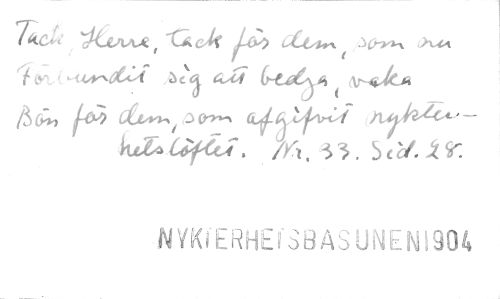 Tack, Herre, tack för dem, som nu
Förbundit sig att bedja, vaka
Bön för dem, som afgifvit nykter-
hetslöftet. Nr. 33. Sid. 28.
NYKTERHETSBASUNEN 1904